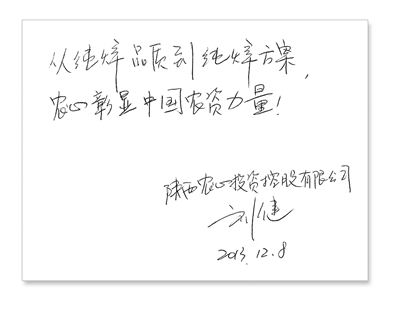 从纯粹品质到纯粹方案，
农心彰显中国农资力量！
陕西农心投资控股有限公司
刘健
2013.12.8